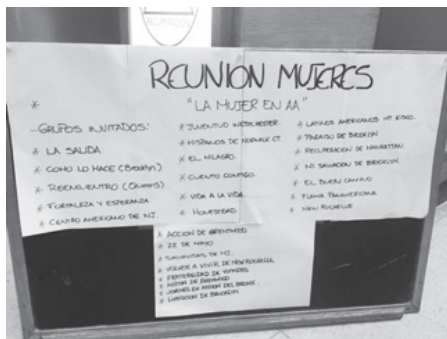 RECUPERACION
REUNION MUJERES
"LA MUJER EN AA"
- GRUPOS INVITADOS:
* LA SALIDA
* COMO LO HACE (Brooklyn)
* REENCUENTRO (QUEENS)
* FORTALEZA Y ESPERANZA
* CENTRO AMERICANO DE NJ.
* JUVENTUD WESTCHESTER.
* HISPANOS DE NORWALK CT.
* EL MILAGRO.
* CUENTO CONTIGO.
* VIDA A LA VIDA
* HONESTIDAD.
* LATINOS AMERICANOS MT KISCO.
* PARAISO DE BROOKLYN
* RECUPERACION DE MANHATTAN
* MI SALVACION DE BROOKLYN
* EL BUEN CAMINO
* FLAMA PANAMERICANA
* NEW ROCHELLE
* ACCION DE BRENTWOOD
* 22 DE MAYO
* DE NJ.
* VOLVER A VIVIR DE NEW ROCHELLE
* FRATERNIDAD DE YONKERS
* ACCION DE BRENTWOOD
* JOVENES EN ACCION DEL BRONX
* DE BROOKLYN